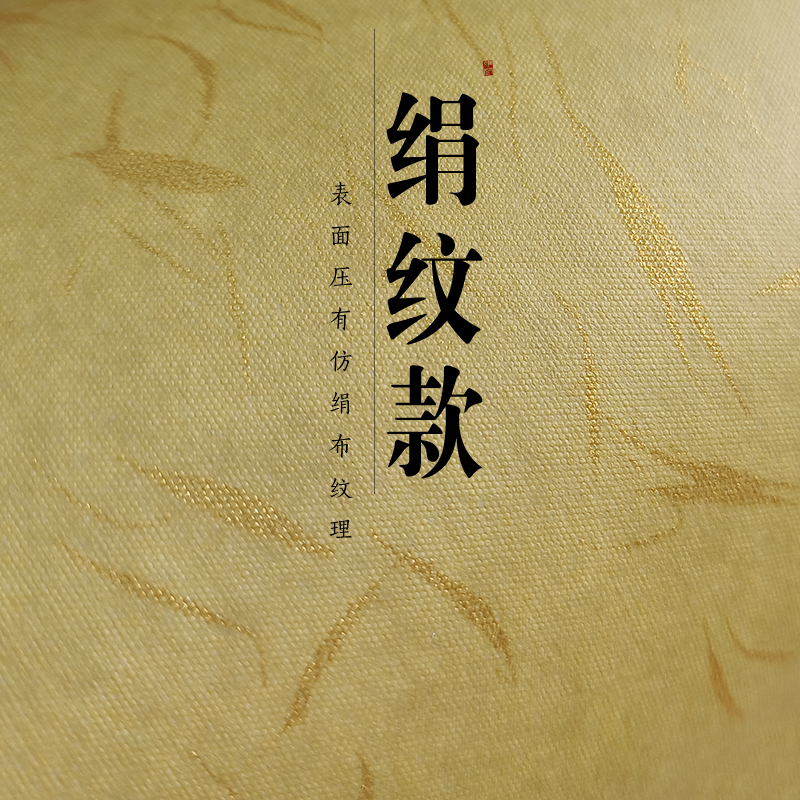 绢纹款
表面压有仿绢布纹理